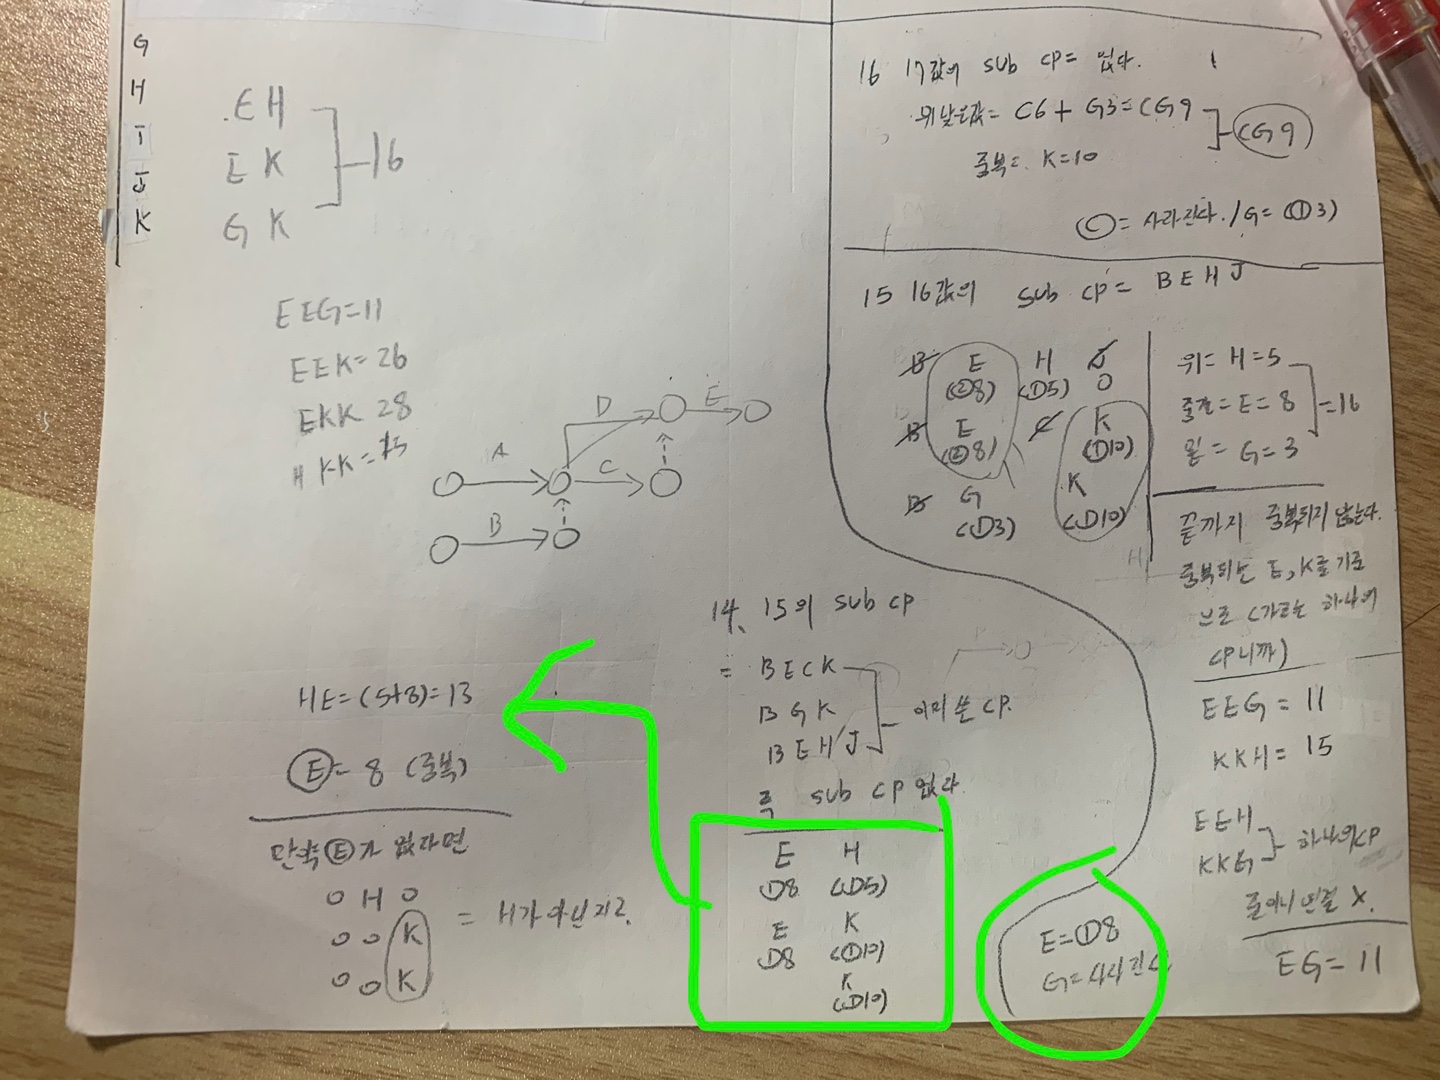 G
H
I
J
K
EH
EK
GK
16
EEG=11
EEK=26
EKK 28
HKK=
A
B
C
D
E
16 17값의 sub CP= 없다.
C6+G3=CG9
CG9
중복= K=10
Ⓒ= 사라진다./G= (①3)
15 16값의 sub CP= BEHJ
B E H J
(②8) (①5) 0
B E C K
(②8) (①10)
B G K
(①3) (①10)
위= H=5
중간=E=8
밑= G=3
=16
끝까지 중복되지 않는다.
중복되는 E, K를 기준
으로 (가로는 하나의
CP니까)
EEG = 11
KKH = 15
EEH
KKG
하나의 CP
줄이니 연결 X.
EG = 11
14, 15의 sub CP
= BECK
BGK
BEH/J
이미 쓴 CP.
즉 sub CP 없다.
E H
①8 (①5)
E K
①8 (①10)
K
(①10)
HE=(5+8)=13
Ⓔ= 8 (중복)
단축Ⓔ가 없다면
0 H 0
0 0 K
0 0 K
= H가 아닌지?
E=①8
G=사라진다